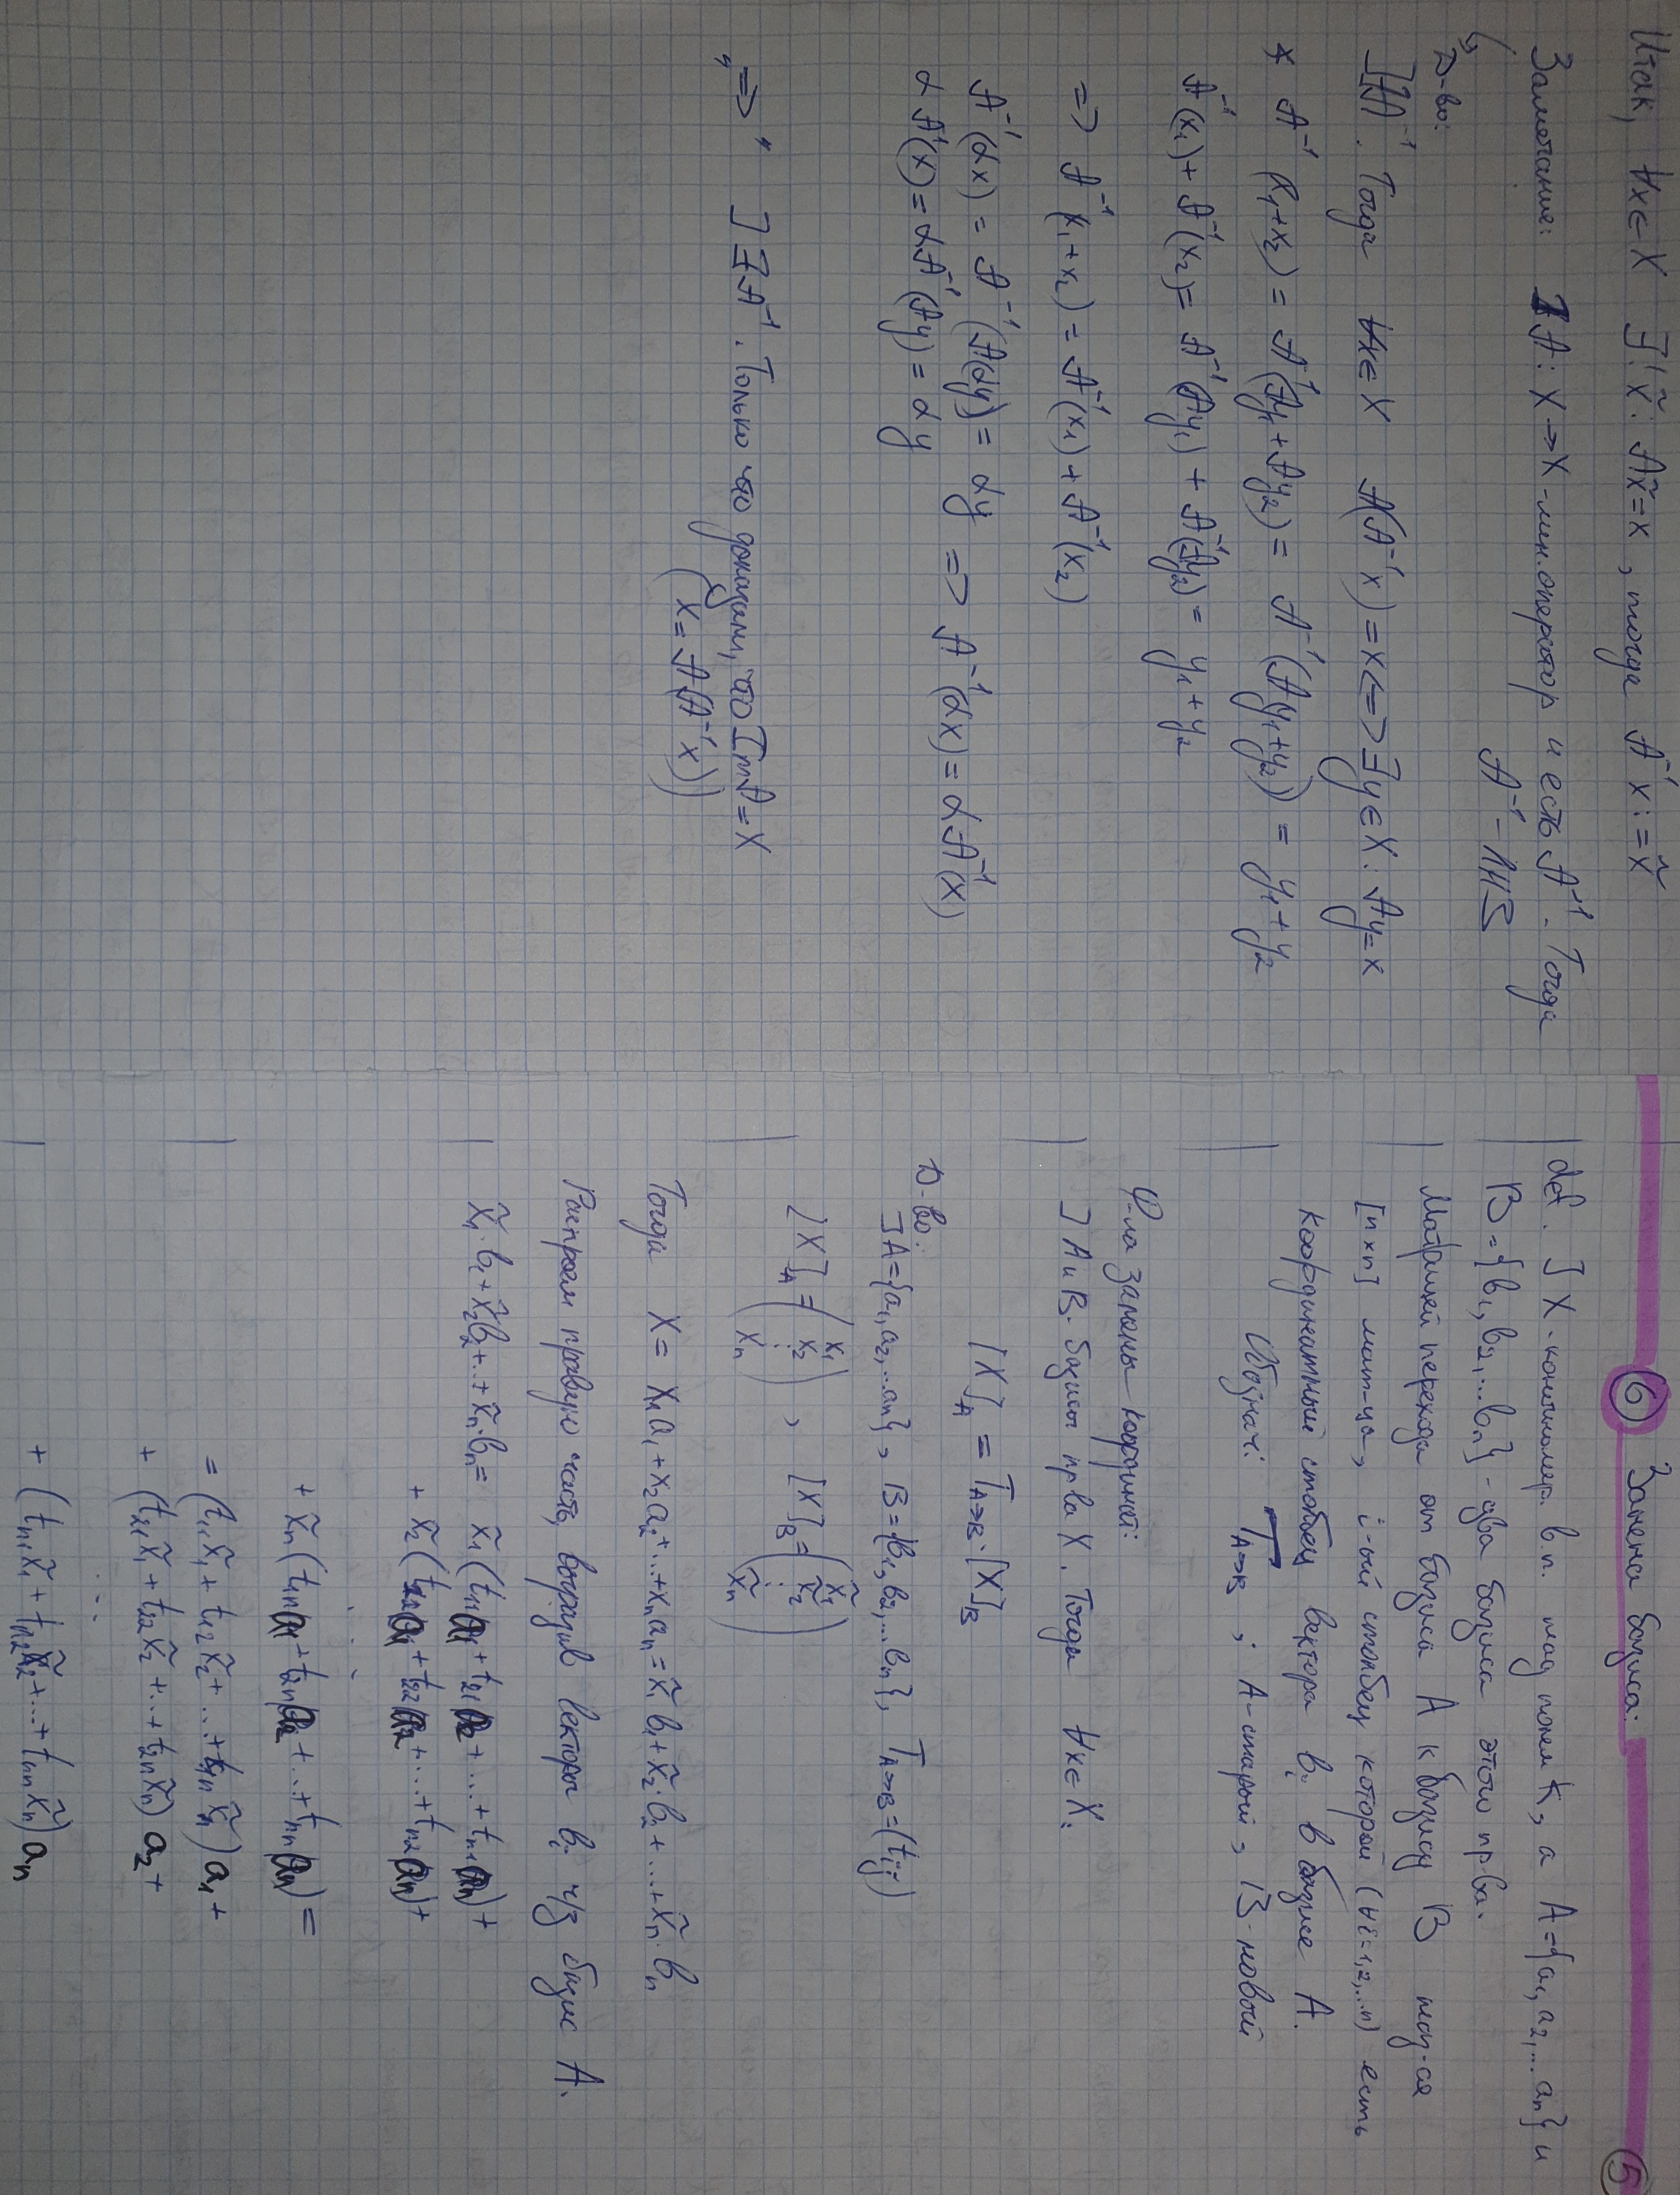 Итак, ∀x∈X ∃! x̃: Ax̃=x, тогда A⁻¹x := x̃
Замечание: ] A: X→X - лин. оператор и есть A⁻¹. Тогда
A⁻¹ - ЛНЗ
Д-во:
]∃A⁻¹. Тогда ∀x∈X A(A⁻¹x) = x <=> ∃y∈X: Ay=x
* A⁻¹(x₁+x₂) = A⁻¹(Ay₁+Ay₂) = A⁻¹(A(y₁+y₂)) = y₁+y₂
A⁻¹(x₁)+A⁻¹(x₂) = A⁻¹(Ay₁) + A⁻¹(Ay₂) = y₁+y₂
=> A⁻¹(x₁+x₂) = A⁻¹(x₁)+A⁻¹(x₂)
A⁻¹(αx) = A⁻¹(A(αy)) = αy => A⁻¹(αx) = αA⁻¹(x)
αA⁻¹(x) = αA⁻¹(Ay) = αy
„=>" ]∃A⁻¹. Только что доказали, что Im A = X
(x = A(A⁻¹x))
5
6 Замена базиса:
def. ] X - конечномер. в.п. над полем K, а A={a₁, a₂, ... aₙ} и
B={b₁, b₂, ... bₙ} - два базиса этого пр-ва.
Матрицей перехода от базиса A к базису B наз-ся
[n×n] мат-ца, i-ый столбец которой (∀i=1,2,...n) есть
координатный столбец вектора bᵢ в базисе A.
Обознач: T_A→B ; A-старый, B-новый
Ф-ла замены координат:
] A и B - базисы пр-ва X. Тогда ∀x∈X:
[X]_A = T_A→B · [X]_B
Д-во:
] A={a₁, a₂, ... aₙ}, B={b₁, b₂, ... bₙ}, T_A→B=(tᵢⱼ)
[X]_A = (x₁ x₂ ⋮ xₙ) , [X]_B = (x̃₁ x̃₂ ⋮ x̃ₙ)
Тогда X = x₁a₁+x₂a₂+...+xₙaₙ = x̃₁b₁+x̃₂·b₂+...+x̃ₙ·bₙ
Распишем правую часть, выразив векторы bᵢ ч/з базис A.
x̃₁·b₁+x̃₂b₂+...+x̃ₙ·bₙ = x̃₁(t₁₁a₁+t₂₁a₂+...+tₙ₁aₙ)+
+ x̃₂(t₁₂a₁+t₂₂a₂+...+tₙ₂aₙ)+
⋮
+ x̃ₙ(t₁ₙa₁+t₂ₙa₂+...+tₙₙaₙ) =
= (t₁₁x̃₁+t₁₂x̃₂+...+t₁ₙx̃ₙ)a₁+
+ (t₂₁x̃₁+t₂₂x̃₂+...+t₂ₙx̃ₙ)a₂+
⋮
+ (tₙ₁x̃₁+tₙ₂x̃₂+...+tₙₙx̃ₙ)aₙ